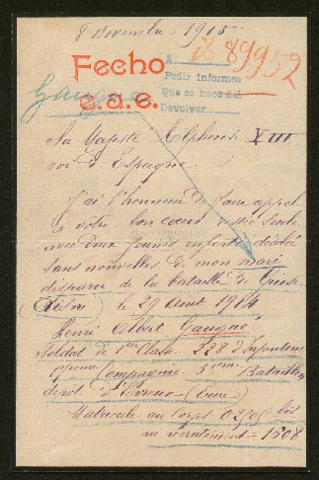 8 Novembre 1915
89952
Fecho
e.a.e.
A
Pedir informes
Que se hace así
Devolver
Gaugne
Sa Majesté Alphonse XIII
roi d'Espagne
J'ai l'honneur de faire appel
à votre bon cœur restée seule
avec deux jeunes enfants désolée
sans nouvelles de mon mari
disparue de la bataille de Guise
Aisne le 29 Aout 1914
Henri Albert Gaugné
Soldat de 1ere Classe 228e Infanterie
Compagnie 5ieme Bataillon
depot d'Evreux (Eure)
Matricule au Corps bis
au recrutement = 1508